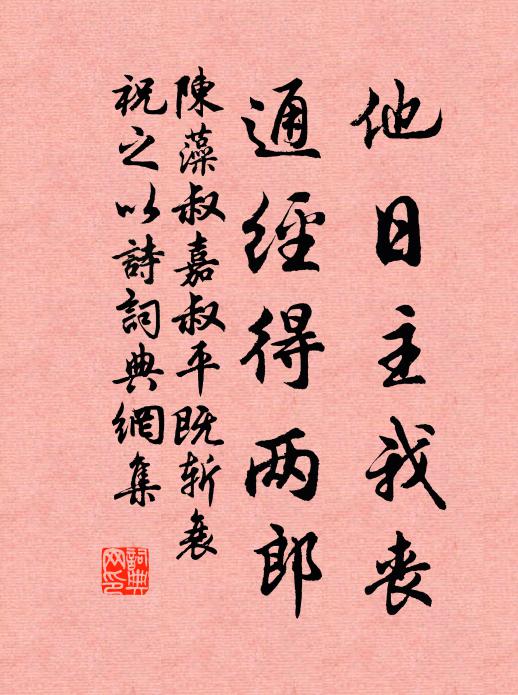 他日主我丧
通經得两郎
陳藻叔嘉叔平既斩衰
祝之以詩詞典網集
詞典网印